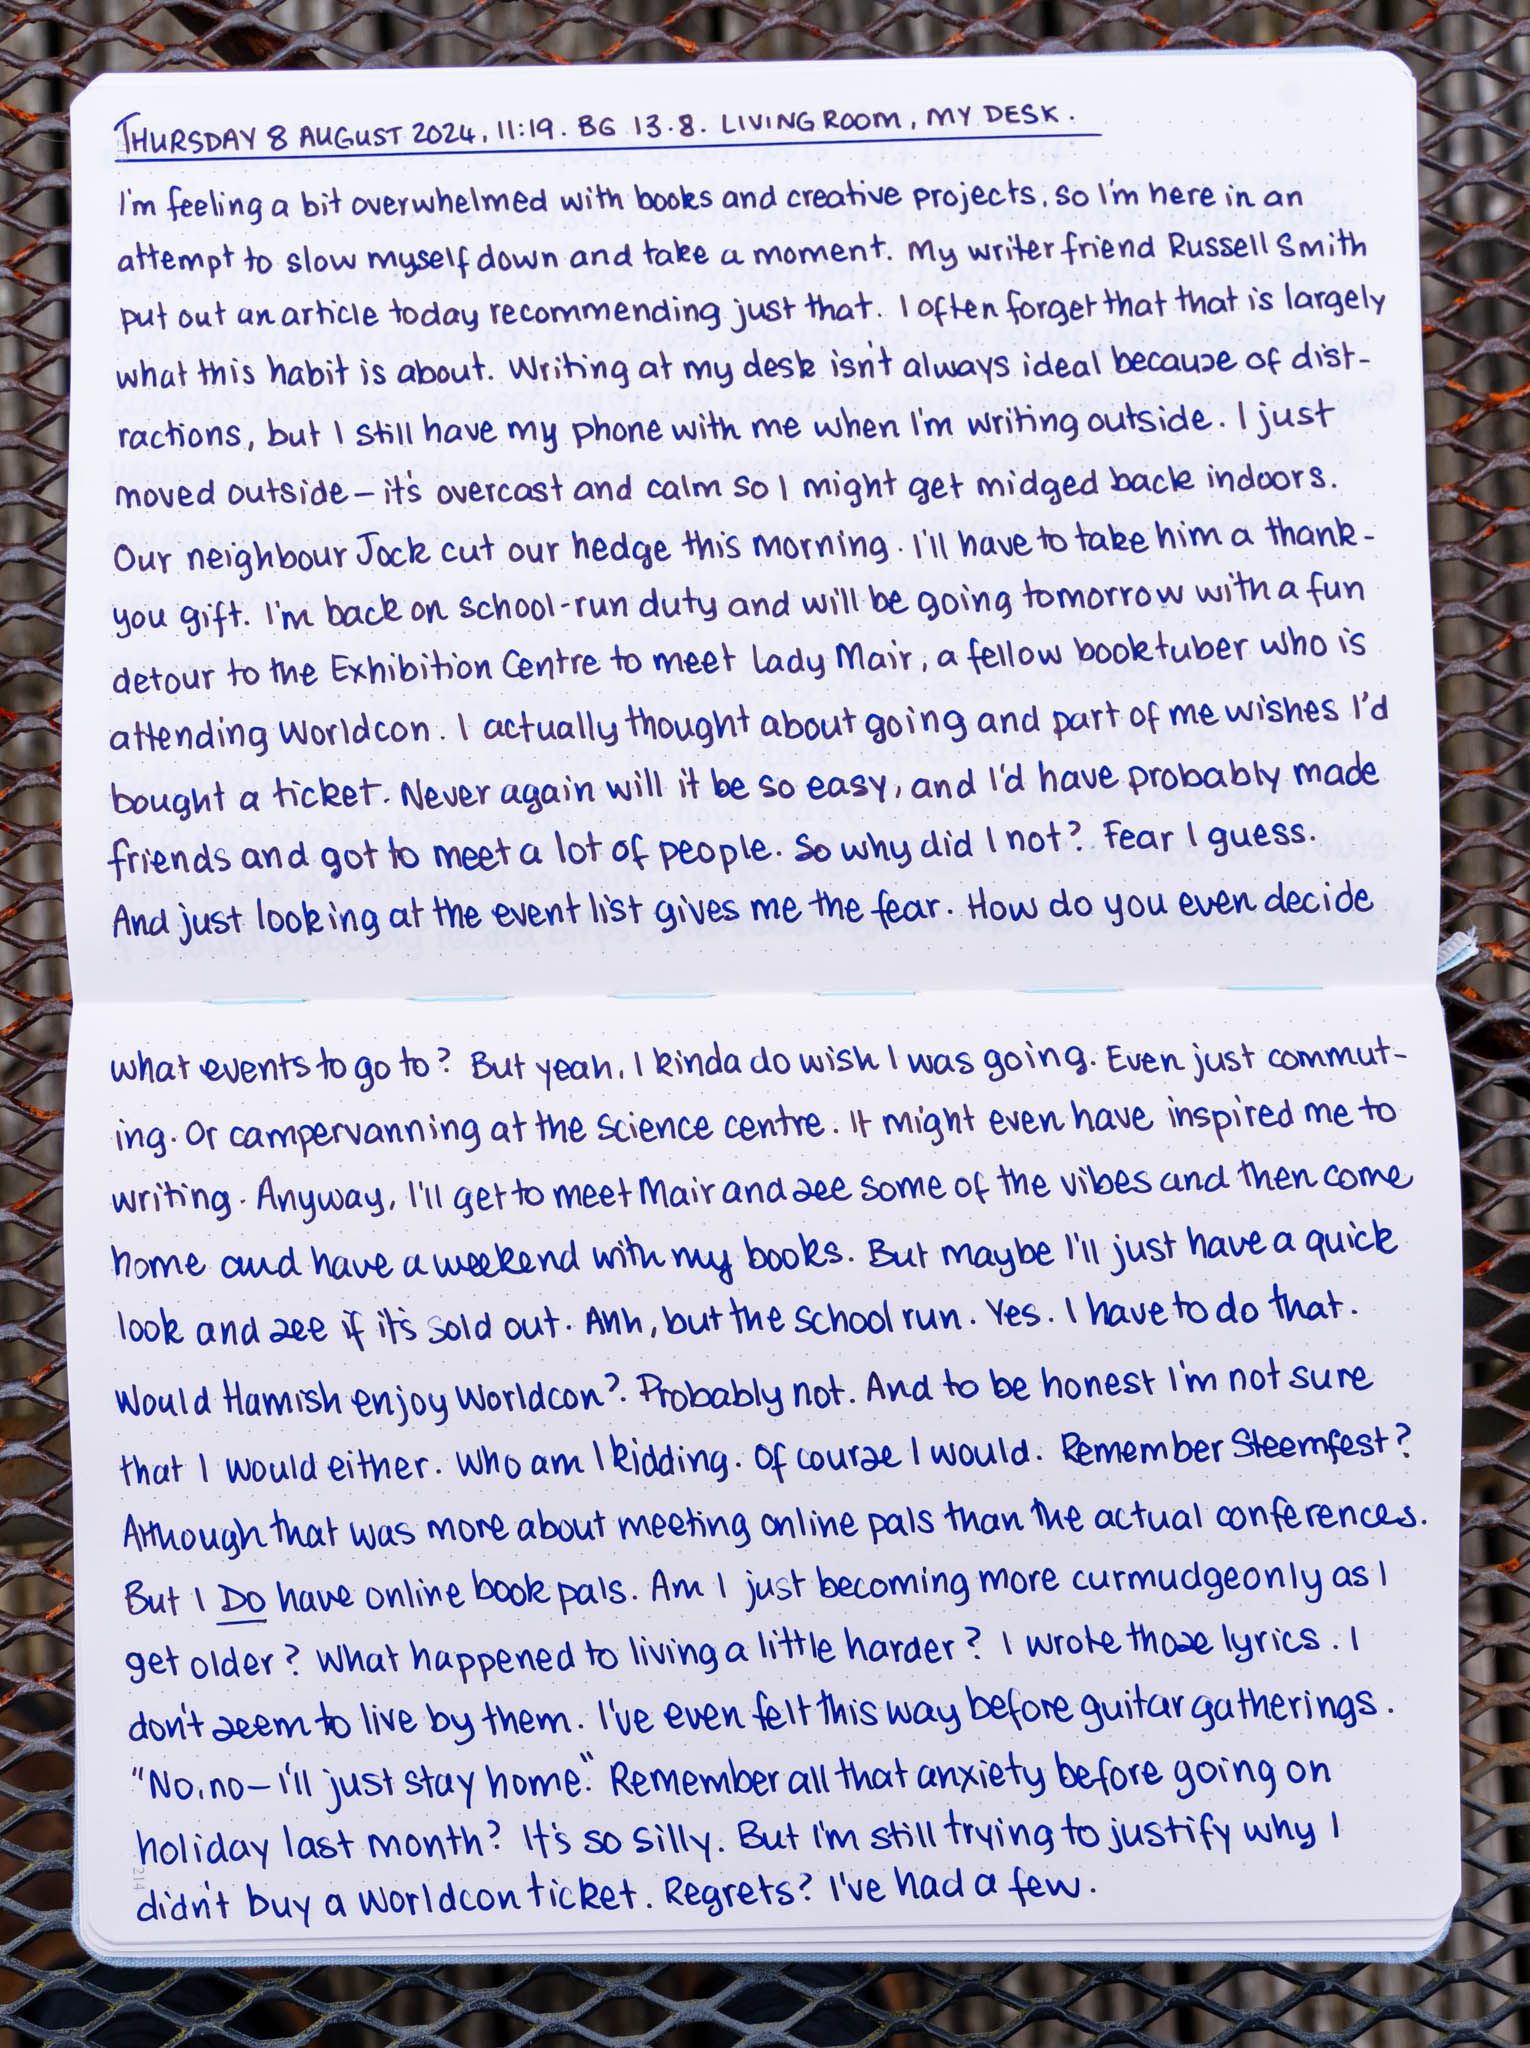 THURSDAY 8 AUGUST 2024, 11:19. BG 13.8. LIVING ROOM, MY DESK.
I'm feeling a bit overwhelmed with books and creative projects, so I'm here in an
attempt to slow myself down and take a moment. My writer friend Russell Smith
put out an article today recommending just that. I often forget that that is largely
what this habit is about. Writing at my desk isn't always ideal because of dist-
ractions, but I still have my phone with me when I'm writing outside. I just
moved outside – it's overcast and calm so I might get midged back indoors.
Our neighbour Jock cut our hedge this morning. I'll have to take him a thank-
you gift. I'm back on school-run duty and will be going tomorrow with a fun
detour to the Exhibition Centre to meet Lady Mair, a fellow booktuber who is
attending Worldcon. I actually thought about going and part of me wishes I'd
bought a ticket. Never again will it be so easy, and I'd have probably made
friends and got to meet a lot of people. So why did I not? Fear I guess.
And just looking at the event list gives me the fear. How do you even decide
what events to go to? But yeah, I kinda do wish I was going. Even just commut-
ing. Or campervanning at the science centre. It might even have inspired me to
writing. Anyway, I'll get to meet Mair and see some of the vibes and then come
home and have a weekend with my books. But maybe I'll just have a quick
look and see if it's sold out. Ahh, but the school run. Yes. I have to do that.
Would Hamish enjoy Worldcon? Probably not. And to be honest I'm not sure
that I would either. Who am I kidding. Of course I would. Remember Steemfest?
Although that was more about meeting online pals than the actual conferences.
But I DO have online book pals. Am I just becoming more curmudgeonly as I
get older? What happened to living a little harder? I wrote those lyrics. I
don't seem to live by them. I've even felt this way before guitar gatherings.
"No, no – I'll just stay home." Remember all that anxiety before going on
holiday last month? It's so silly. But I'm still trying to justify why I
didn't buy a Worldcon ticket. Regrets? I've had a few.
214